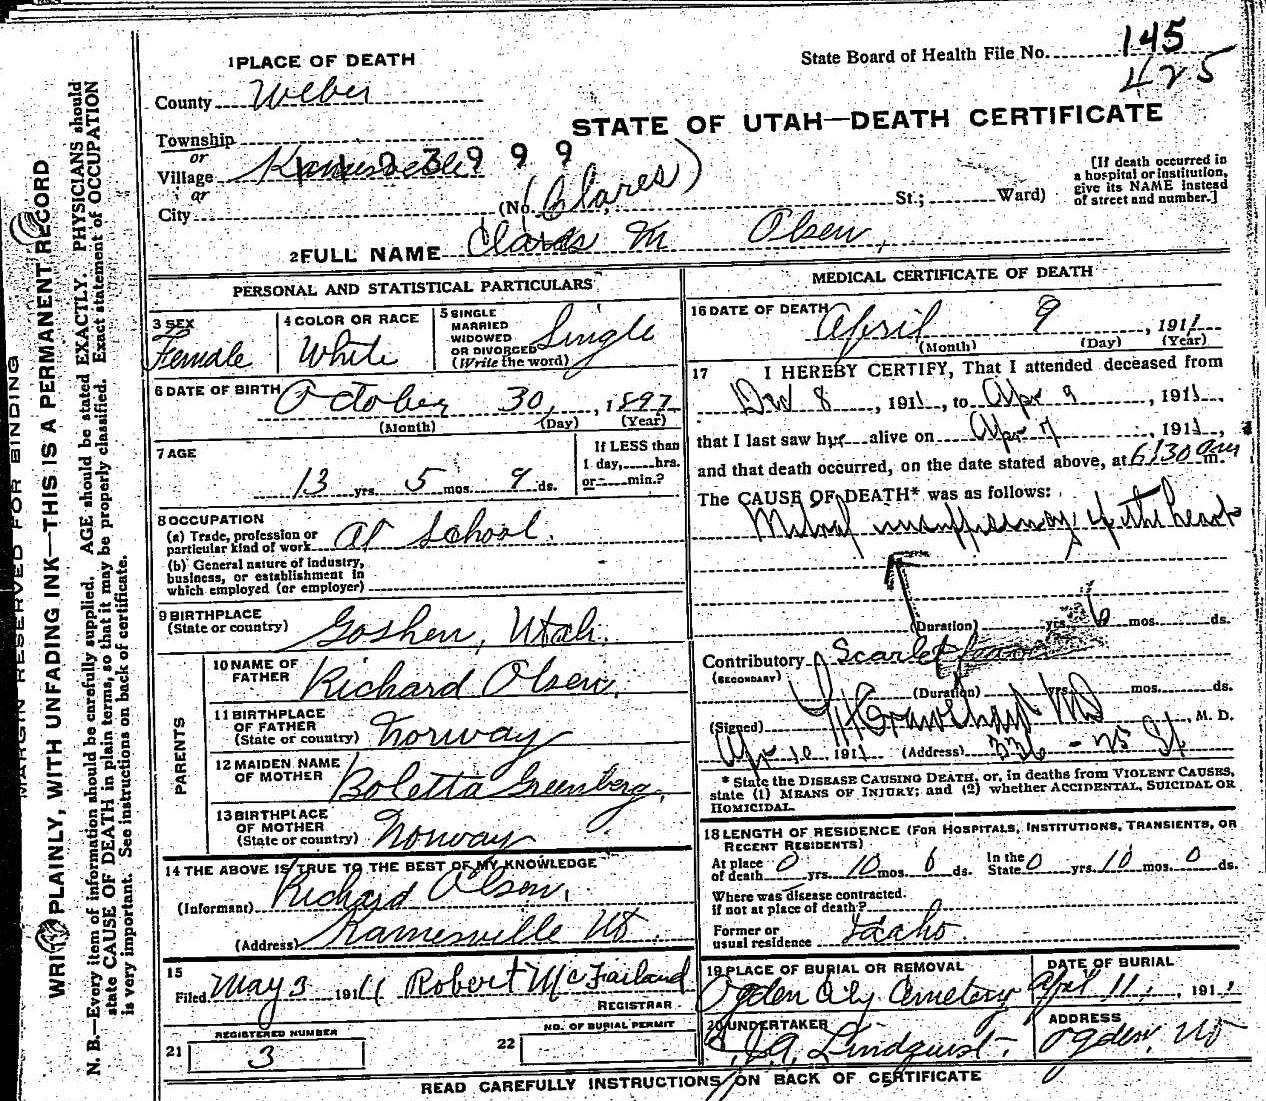 State Board of Health File No. 145
425
1 PLACE OF DEATH
County Weber
STATE OF UTAH—DEATH CERTIFICATE
Township
or
Village Kanesville 1123999
or
City (No. (Clares) St.; Ward)
[If death occurred in
a hospital or institution,
give its NAME instead
of street and number.]
2 FULL NAME Clares M Olsen,
PERSONAL AND STATISTICAL PARTICULARS
3 SEX
Female
4 COLOR OR RACE
White
5 SINGLE
MARRIED
WIDOWED
OR DIVORCED
(Write the word)
Single
6 DATE OF BIRTH October 30, 1897
(Month) (Day) (Year)
7 AGE
13 yrs. 5 mos. 9 ds.
If LESS than
1 day, hrs.
or min.?
8 OCCUPATION
(a) Trade, profession or
particular kind of work At School.
(b) General nature of industry,
business, or establishment in
which employed (or employer)
9 BIRTHPLACE
(State or country) Goshen, Utah.
PARENTS
10 NAME OF
FATHER Richard Olsen.
11 BIRTHPLACE
OF FATHER
(State or country) Norway
12 MAIDEN NAME
OF MOTHER Boletta Greenberg.
13 BIRTHPLACE
OF MOTHER
(State or country) Norway
14 THE ABOVE IS TRUE TO THE BEST OF MY KNOWLEDGE
(Informant) Richard Olsen.
(Address) Kanesville Ut.
15
Filed May 3 1911 Robert McFarland
REGISTRAR
REGISTERED NUMBER
21 3
NO. OF BURIAL PERMIT
22
MEDICAL CERTIFICATE OF DEATH
16 DATE OF DEATH April 9, 1911
(Month) (Day) (Year)
17 I HEREBY CERTIFY, That I attended deceased from
8, 1911, to Apr 9, 1911,
that I last saw her alive on Apr 7, 1911,
and that death occurred, on the date stated above, at 6:30 am m.
The CAUSE OF DEATH* was as follows:
Mitral insufficiency of the heart
(Duration) yrs. 6 mos. ds.
Contributory Scarlet
(SECONDARY)
(Duration) yrs. mos. ds.
(Signed) M. D.
Apr 10 1911 (Address) 336 - 25 St
* State the DISEASE CAUSING DEATH, or, in deaths from VIOLENT CAUSES,
state (1) MEANS OF INJURY; and (2) whether ACCIDENTAL, SUICIDAL OR
HOMICIDAL.
18 LENGTH OF RESIDENCE (FOR HOSPITALS, INSTITUTIONS, TRANSIENTS, OR
RECENT RESIDENTS)
At place
of death 0 yrs. 10 mos. 6 ds.
In the
State 0 yrs. 10 mos. 0 ds.
Where was disease contracted.
if not at place of death?
Former or
usual residence Idaho.
19 PLACE OF BURIAL OR REMOVAL
Ogden City Cemetery
DATE OF BURIAL
April 11, 1911
20 UNDERTAKER
Lindquist.
ADDRESS
Ogden, Ut
READ CAREFULLY INSTRUCTIONS ON BACK OF CERTIFICATE
MARGIN RESERVED FOR BINDING
WRITE PLAINLY, WITH UNFADING INK—THIS IS A PERMANENT RECORD
N. B.—Every item of information should be carefully supplied. AGE should be stated EXACTLY. PHYSICIANS should
state CAUSE OF DEATH in plain terms, so that it may be properly classified. Exact statement of OCCUPATION
is very important. See instructions on back of certificate.